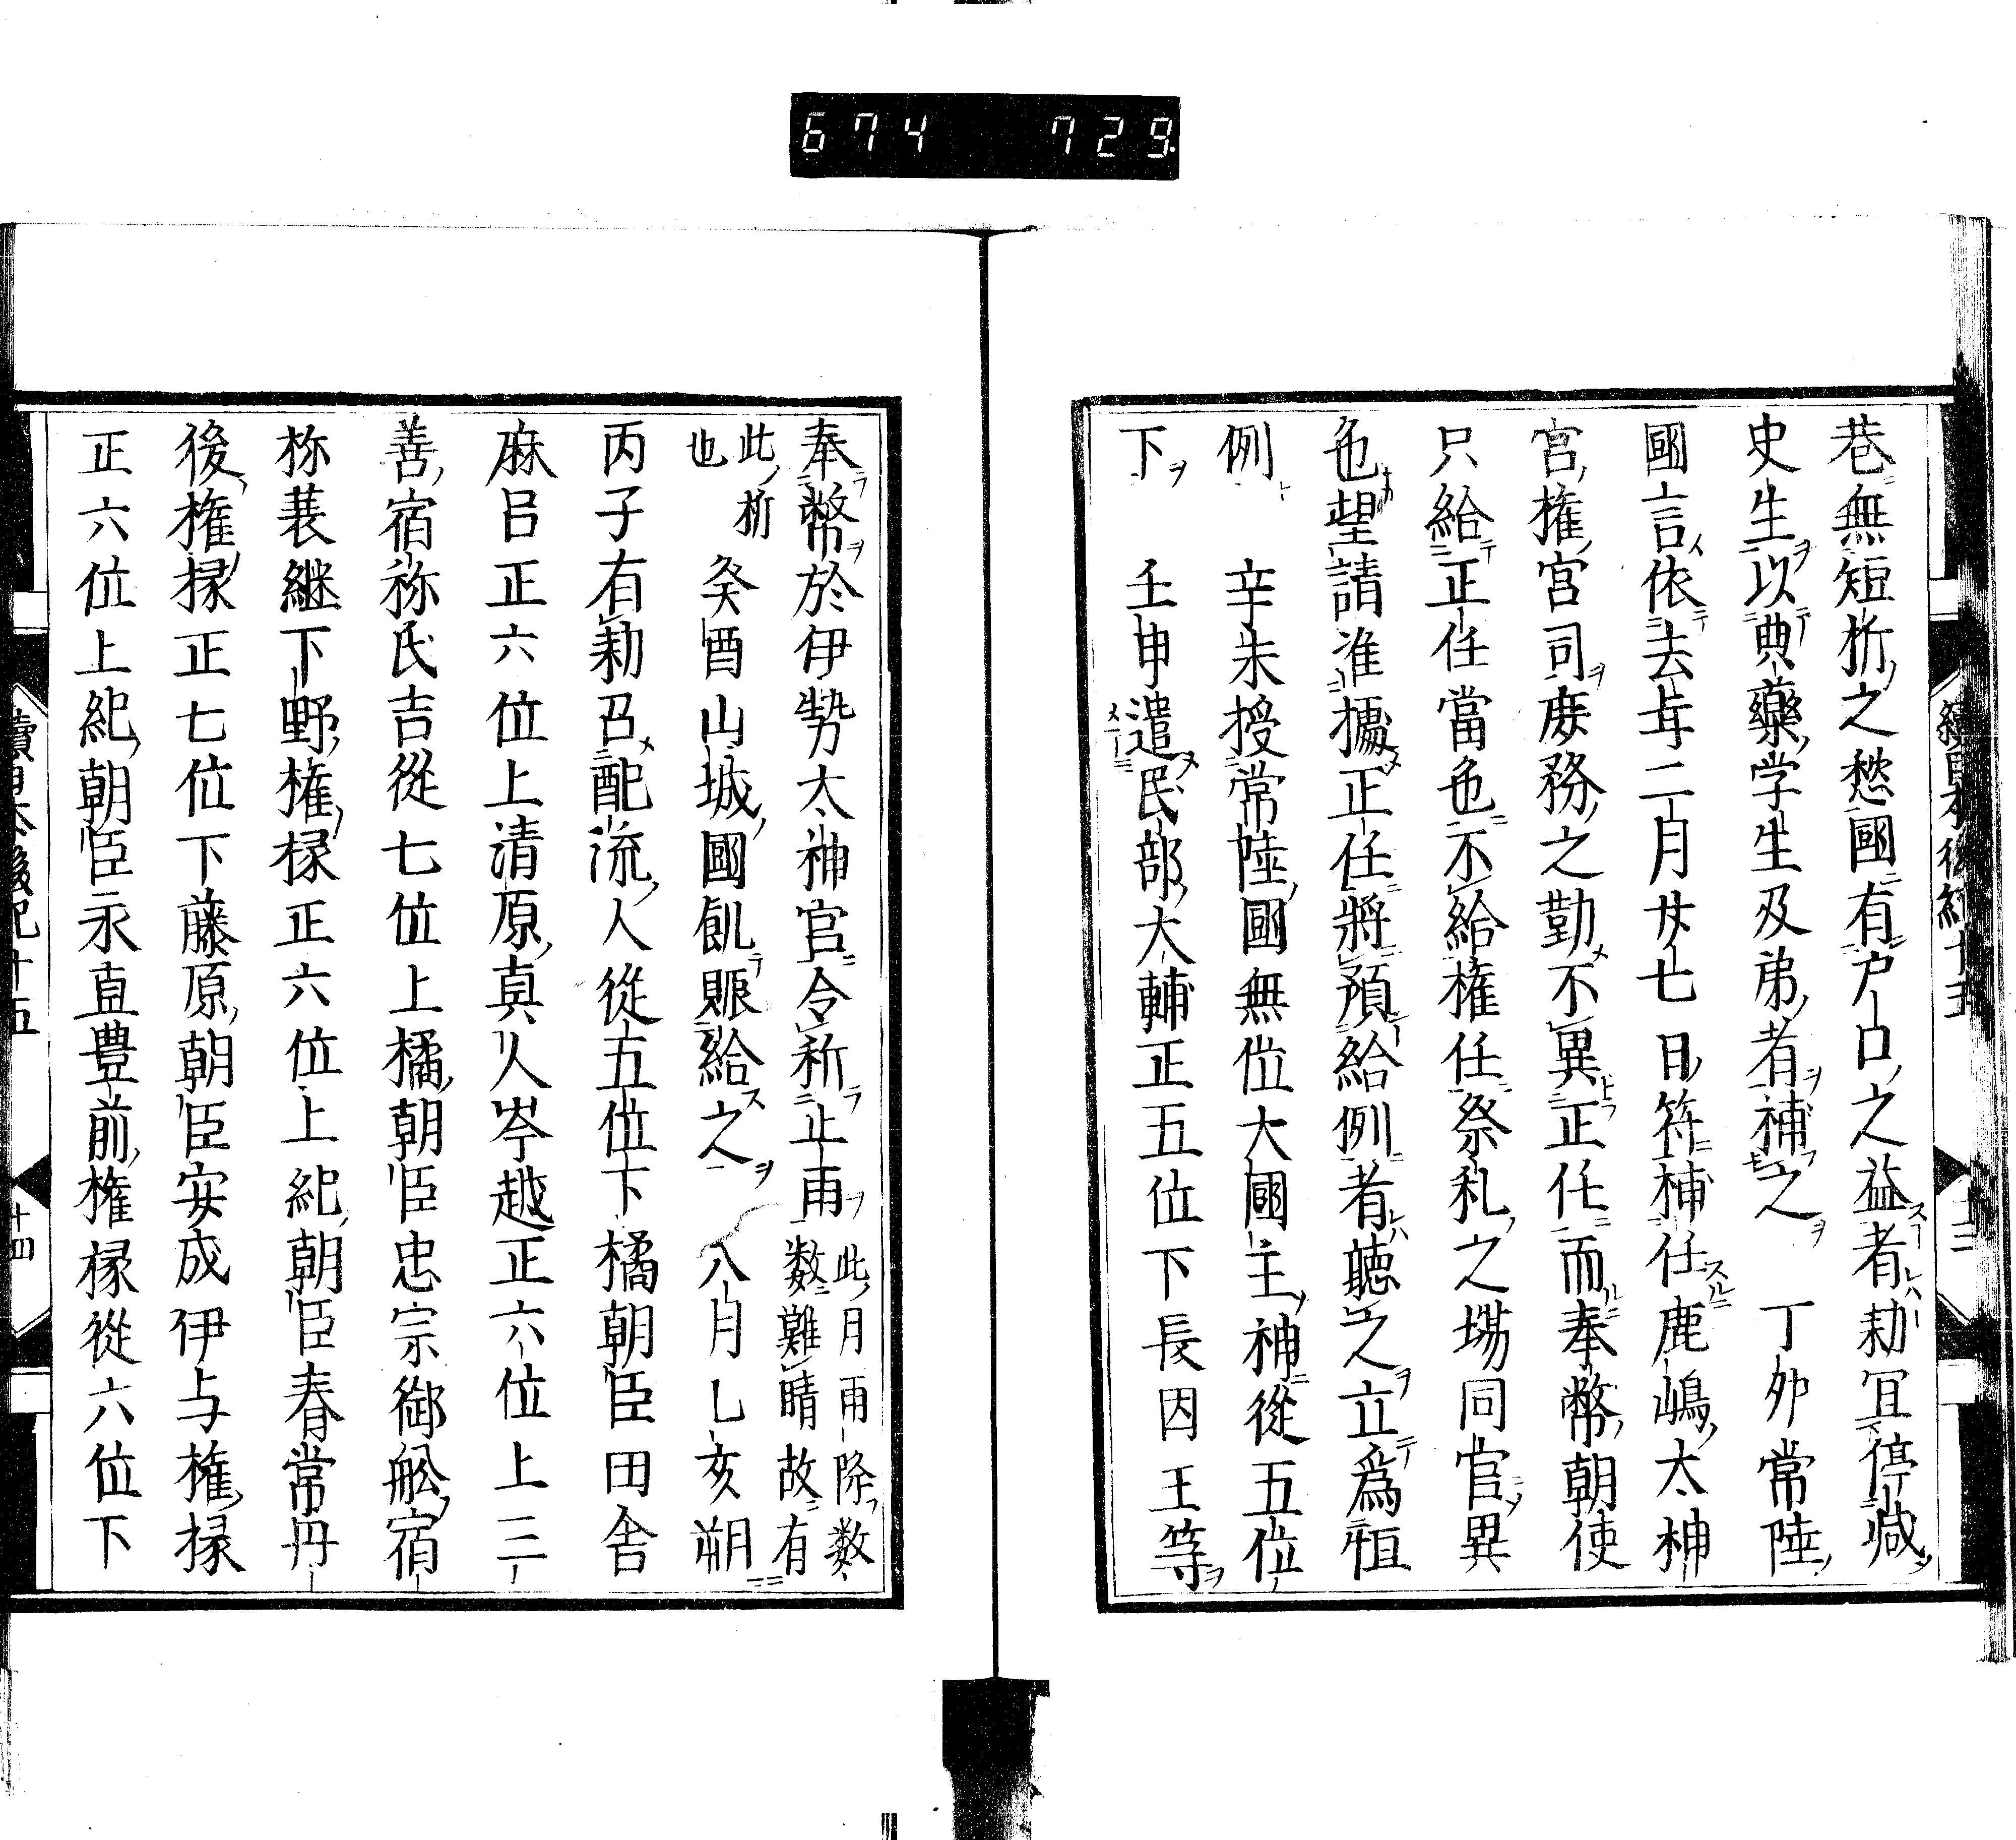 674 729
巷無短折之愁國有戸口之益者勅宜停減
史生以典藥学生及弟者補之　丁夘常陸
國言依去年二月廿七日符補任鹿嶋太神
宮權宮司庶務之勤不異正任而奉幣朝使
只給正任當色不給権任祭礼之場同官異
色望請准據正任將預給例者聽之立爲恒
例　辛未授常陸國無位大國主神從五位
下　壬申遣民部大輔正五位下長因王等
奉幣於伊勢太神宮令祈止雨此月雨降数
数難晴故有
此祈
也
癸酉山城國飢賑給之　八月乙亥朔
丙子有勅召配流人從五位下橘朝臣田舎
麻呂正六位上清原真人岑越正六位上三
善宿祢氏吉從七位上橘朝臣忠宗御舩宿
祢裳継下野權掾正六位上紀朝臣春常丹
後權掾正七位下藤原朝臣安成伊与權掾
正六位上紀朝臣永直豊前権掾從六位下
續日本後紀十五
十四